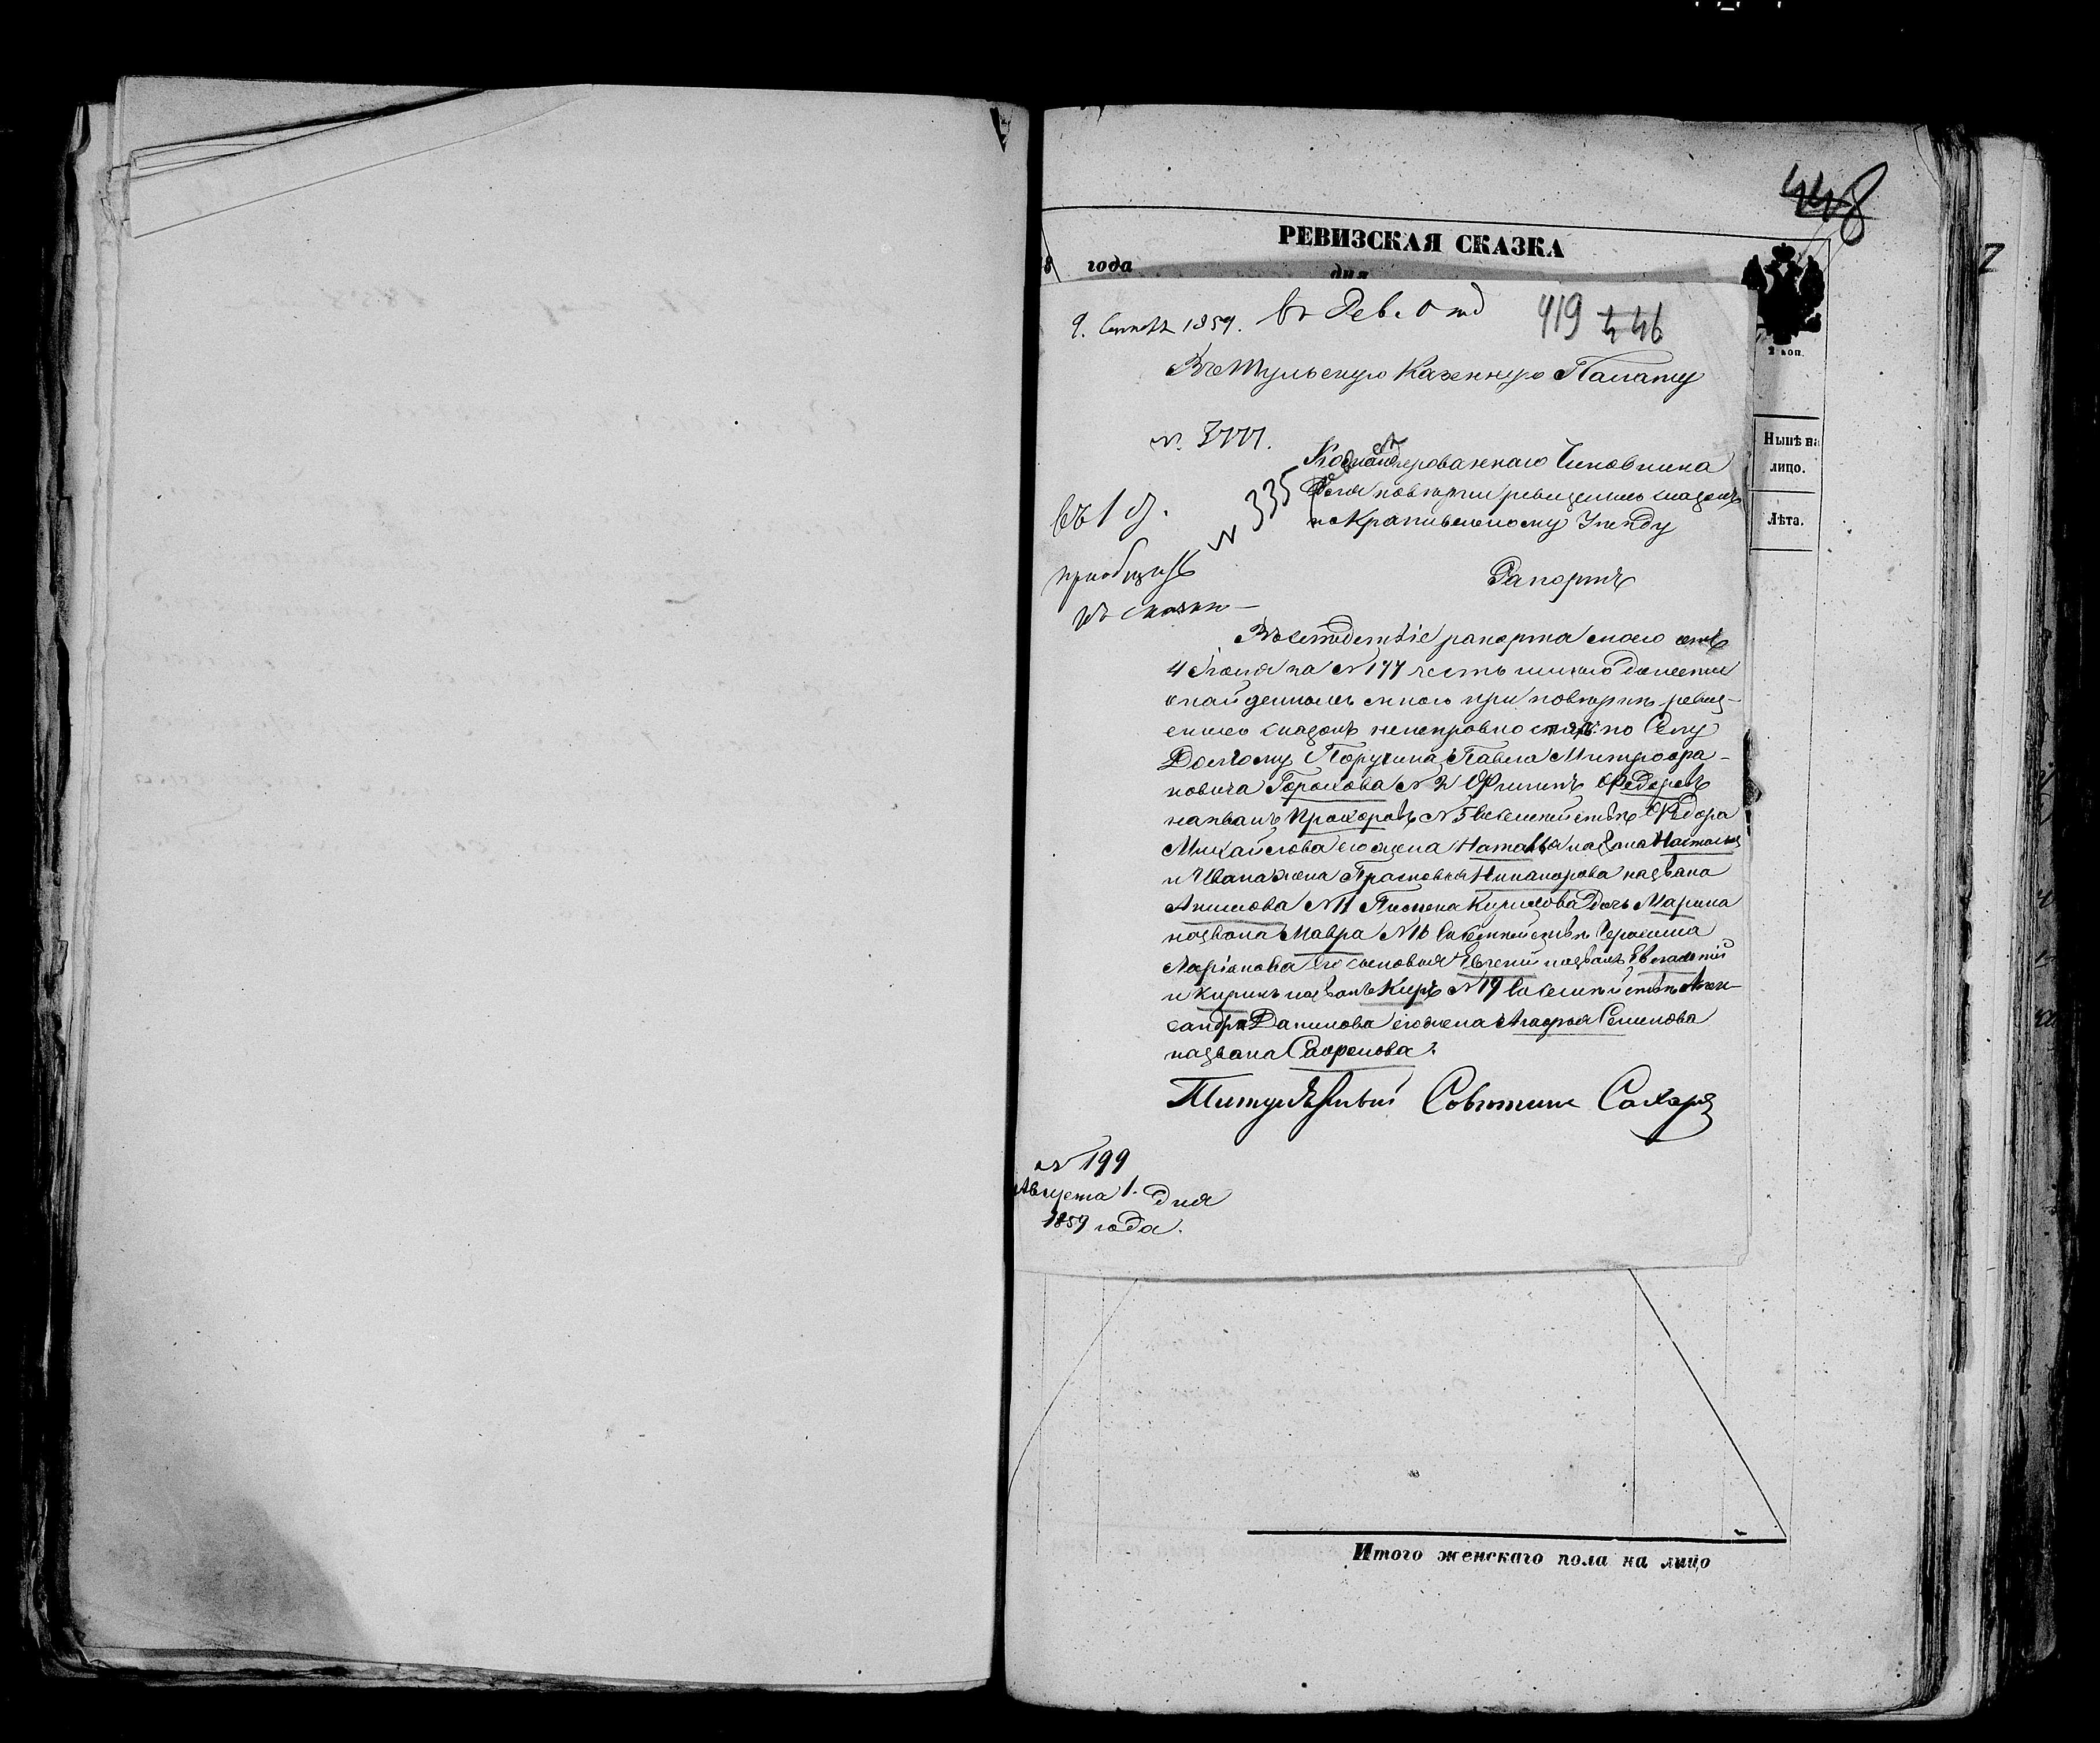 448
РЕВИЗСКАЯ СКАЗКА
8 года дня
2 коп.
9. 1859. въ Рев. Отд 419 446
Въ Тульскую Казенную Палату
N. 3777.
Кодмандированнаго Чиновника
для повѣрки ревизскихъ сказокъ
по Крапивенскому Уезду
N 335
въ 1 д.
приобщить
къ сказкѣ
Рапортъ
Въ следствіе рапорта моего отъ
4 Июня за N 177 честь имѣю донести
о найденныхъ мною при повѣрке ревиз-
скихъ сказокъ неисправностяхъ: по Селу
Долгому Поручика Павла Митрофа-
новича Горохова N 2 Филипъ Федоровъ
названъ Прохоровъ N 5 въ семействѣ Федора
Михайлова его жена Наталья названа Настасья
и Ивана жена Прасковья Никанорова названа
Акимова N 11 Пимена Кирилова дочь Марина
названа Мавра N 16 въ Семействѣ Герасима
Ларіонова его сыновья Евгений названъ
и Кирикъ названъ Киръ N 19 въ семействѣ Алек-
сандра Данилова его жена Агафья Семенова
названа Сафронова.
Титулярный Советникъ Сахаров
N 199
Августа 1. дня
1859 года.
Нынѣ на
лицо.
Лѣта.
Итого женскаго пола на лицо